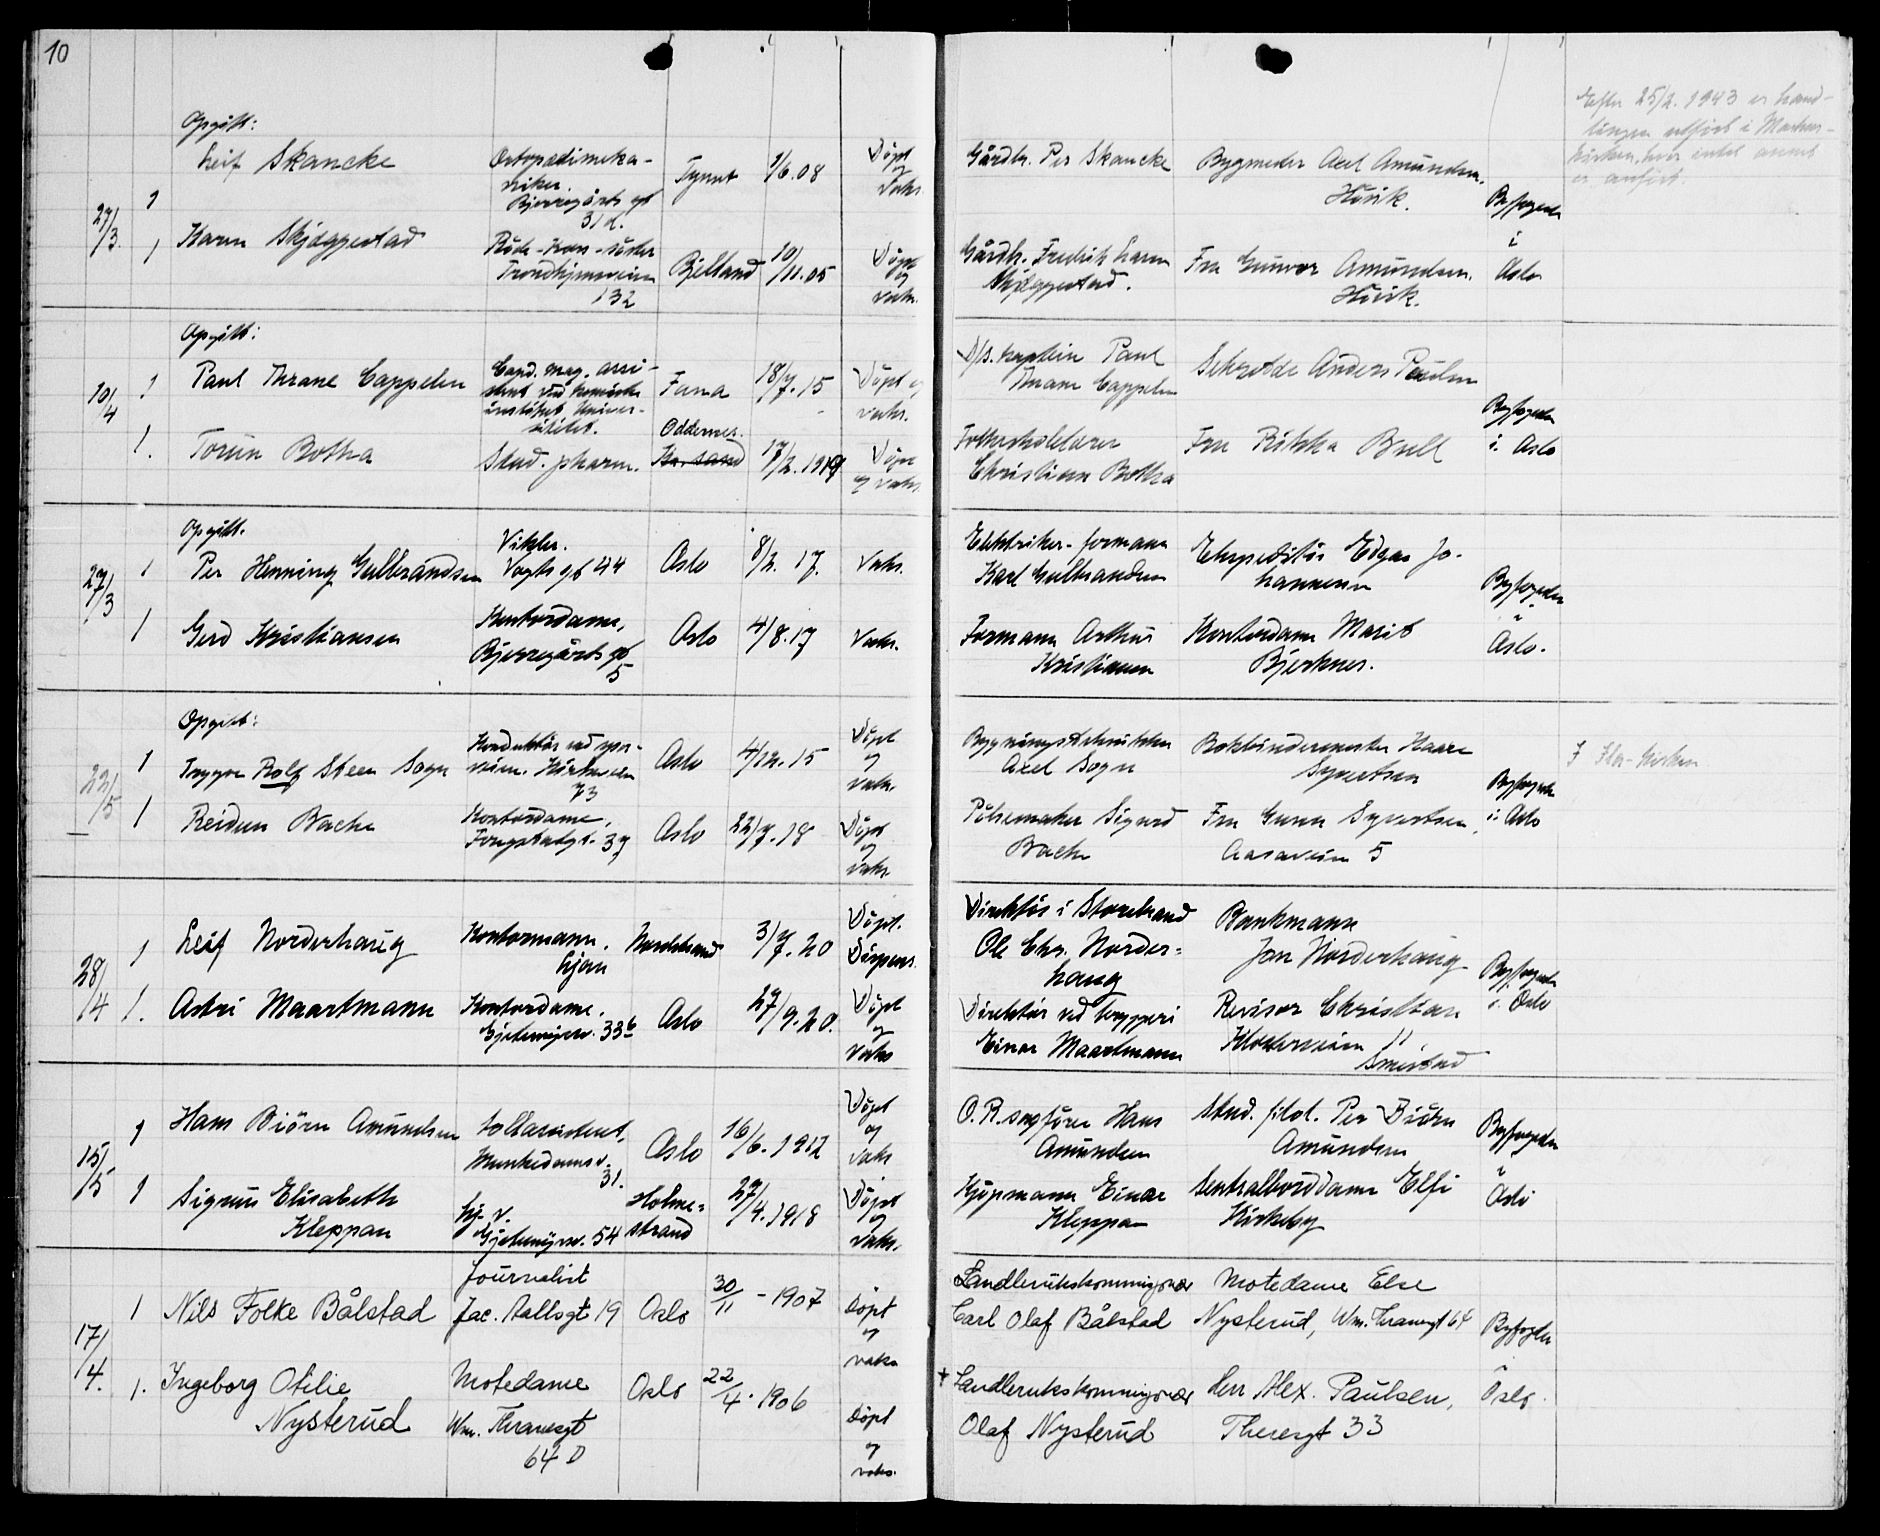 10
Efter 25/2. 1943 er hand-
lingen utført i Markus-
kirken, hvor intet annet
er anført.
Opgitt:
27/3. 1 Leif Skancke Ortopedimeka-
niker.
Bjerregårds gt
31 d. Tynset 1/6.08 Døpt
og
vaks. Gårdbr. Per Skancke Bygmester Axel Amundsen.
Høvik. Byfogden
i
Oslo
1 Karen Skjæggestad Røde-Kors-søster
Trondhjemsveien
132 Bjelland 10/11.05 Døpt
og
vaks. Gårdbr. Fredrik Larsen
Skjæggestad. Fru Gunvor Amundsen.
Høvik.
Opgitt:
10/4 1 Paul Thrane Cappelen Cand. mag. assi-
stent ved kemiske
institut Univer-
sitetet. Fana 18/7.15 Døpt og
vaks. D/s. kaptein Paul
Thrane Cappelen Sekretær Anders Paulsen Byfogden
i Oslo
1. Torun Botha Stud. pharm. Oddernes.
Kr. sand 17/2.1919 Døpt
og vaks. Folkeskolelærer
Christian Botha Fru Rikka Bull
Opgitt.
27/3 1 Per Henning Gulbrandsen Vikler.
Vogts gt 44 Oslo 8/2. 17. Vaks. Elektriker-formann
Karl Gulbrandsen Ekspeditør Edgar Jo-
hannessen Byfogden
i
Oslo.
1 Gerd Kristiansen Kontordame,
Bjerregårds gt
5 Oslo 4/8.17 Vaks. Formann Arthur
Kristiansen Kontordame Marit
Bjerknes.
Opgitt:
22/5 1 Trygve Rolf Steen Sogn Konduktør ved spor-
veien. Kirkeveien
73 Oslo 4/12.15 Døpt
og
vaks. Bygningstekniker
Axel Sogn Bokbindermester Kaare
Syvertsen Byfogden
i Oslo I Ila-kirken
1 Reidun Bache Kontordame,
39 Oslo 22/7.18 Døpt
og
vaks. Pølsemaker Sigurd
Bache Fru Gunn Syvertsen,
Aasaveien 5
28/4 1 Leif Norderhaug Kontormann.
Ljan Nordstrand 3/7.20 Døpt.
Dispens. Direktør i Storebrand
Ole Chr. Norder=
haug Bankmann
Jan Norderhaug Byfogden
i Oslo
1. Astri Maartmann Kontordame.
Gjetemyrsv. 33b Oslo 27/9.20. Døpt
og
vaks Direktør ved bryggeri
Einar Maartmann Revisor Christian
Klosterveien 11
Smestad
15/5 1 Hans Biörn Amundsen Tollassistent,
Munkedamsv.
31. Oslo 16/6.1912 Døpt
og
vaks O.R.sagfører Hans
Amundsen Stud. filol. Per Biörn
Amundsen Byfogden
i
Oslo
1 Sigrun Elisabeth
Kleppan Hj. v.
Gjetemyrsv. 54 Holme=
strand 27/4.1918 Døpt
og
vaks. Kjøpmann Einar
Kleppan Sentralborddame Elfi
Kirkeby
17/4. 1 Nils Folke Bålstad Journalist
Jac. Aallsgt 19 Oslo 30/11 - 1907 døpt
og
vaks Landbrukskommisjonær
Carl Olaf Bålstad Motedame Else
Nysterud, Wm. Thranesgt 64 Byfogden
i
Oslo.
1. Ingeborg Otilie
Nysterud Motedame
Wm. Thranesgt
64 D Oslo 22/4. 1906 døpt
og
vaks. + Landbrukskommisjonær
Olaf Nysterud Herr Alex. Paulsen,
Theresgt 33